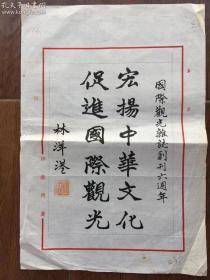 國際觀光雜誌創刊六週年
宏揚中華文化
促進國際觀光
林洋港